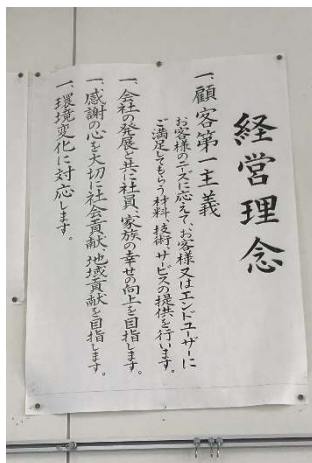 経営理念
一、顧客第一主義
お客様のニーズに応えて、お客様又はエンドユーザーに
ご満足してもらう材料、技術、サービスの提供を行います。
一、会社の発展と共に社員、家族の幸せの向上を目指します。
一、感謝の心を大切に社会貢献、地域貢献を目指します。
一、環境変化に対応します。